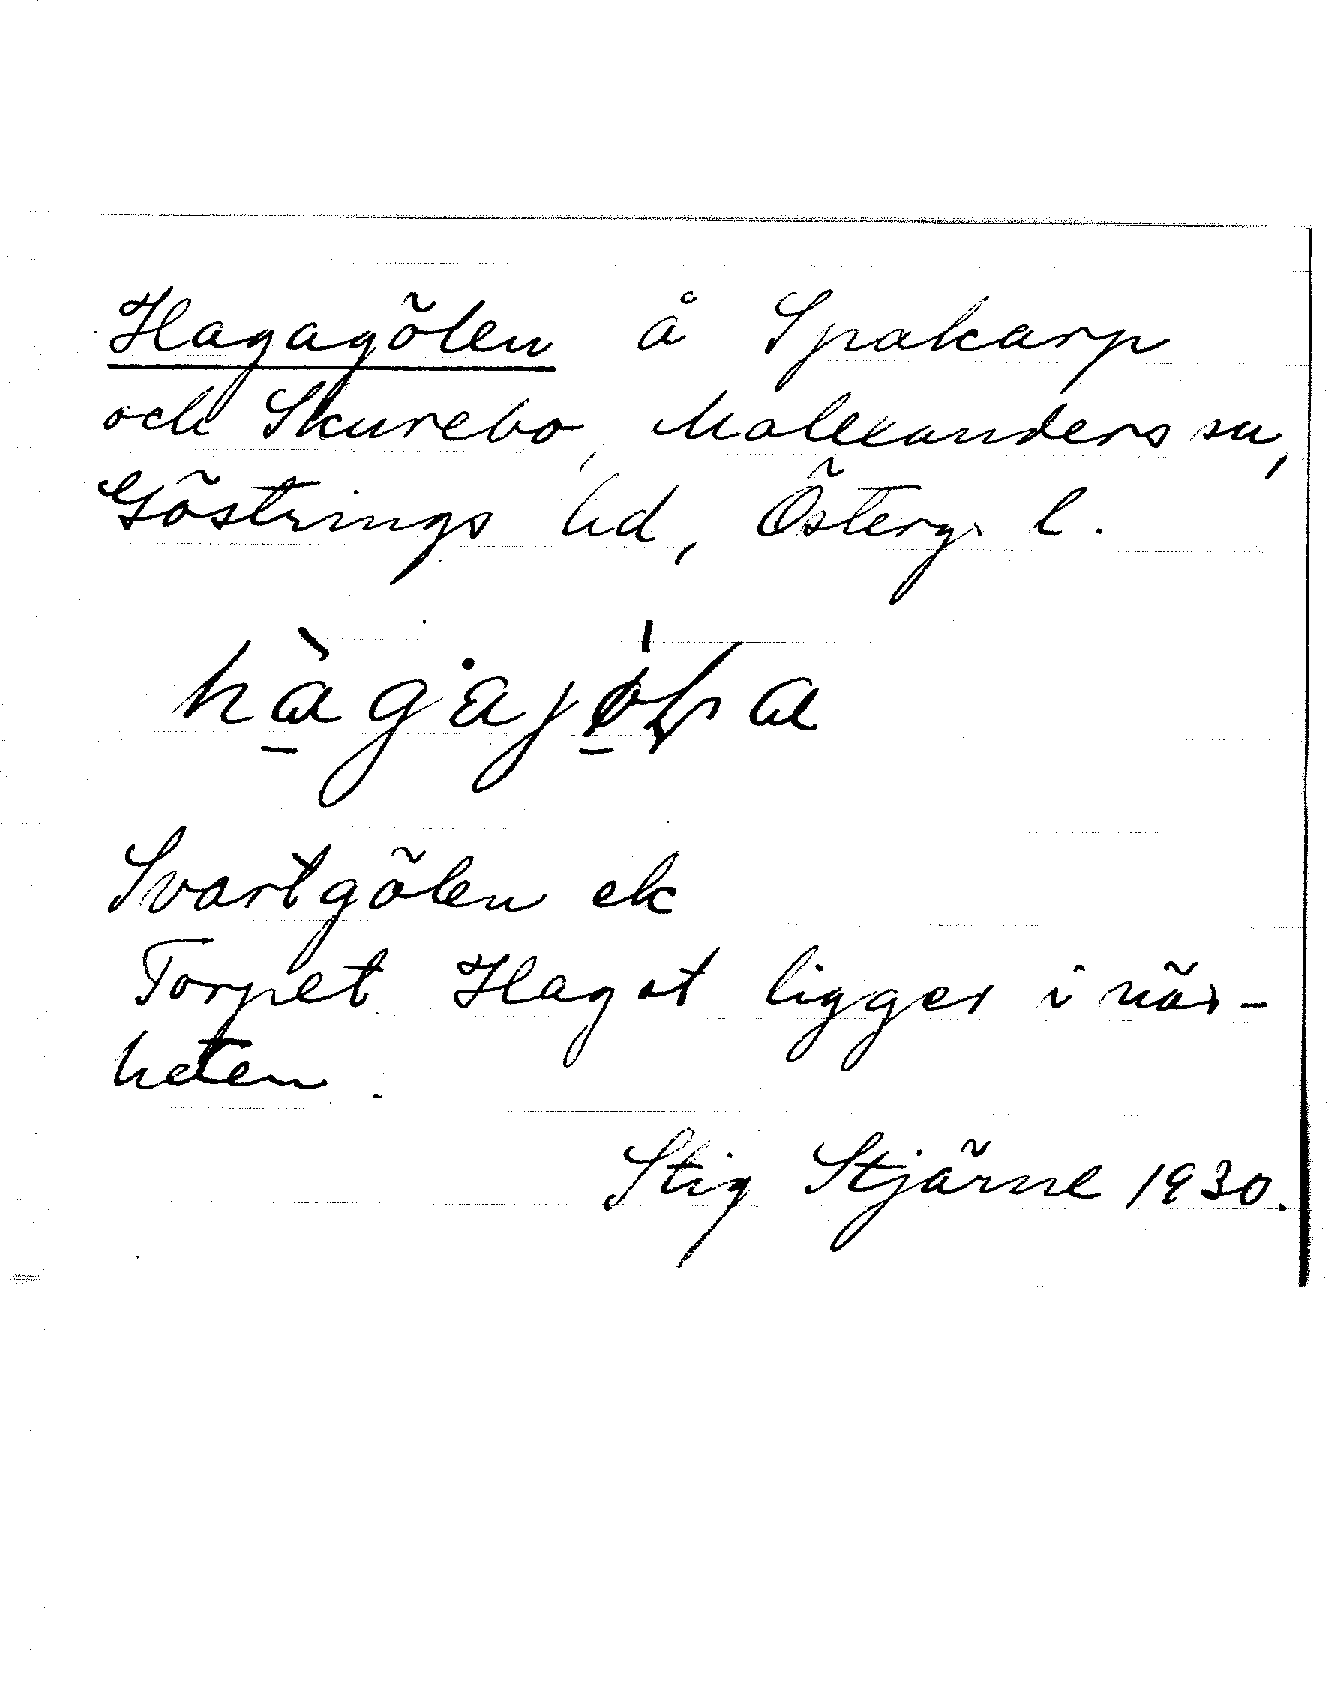 Hagagölen å Spakarp
och Skurebo, Malexanders sn,
Göstrings hd, Österg. l.
hàgajøla
Svartgölen ek
Torpet Haget ligger i när-
heten.
Stig Stjärne 1930.